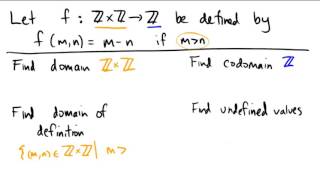 Let f : ℤ×ℤ → ℤ be defined by
f(m,n) = m-n if m>n
Find domain ℤ×ℤ
Find codomain ℤ
Find domain of
definition
{(m,n) ∈ ℤ×ℤ | m>
Find undefined values